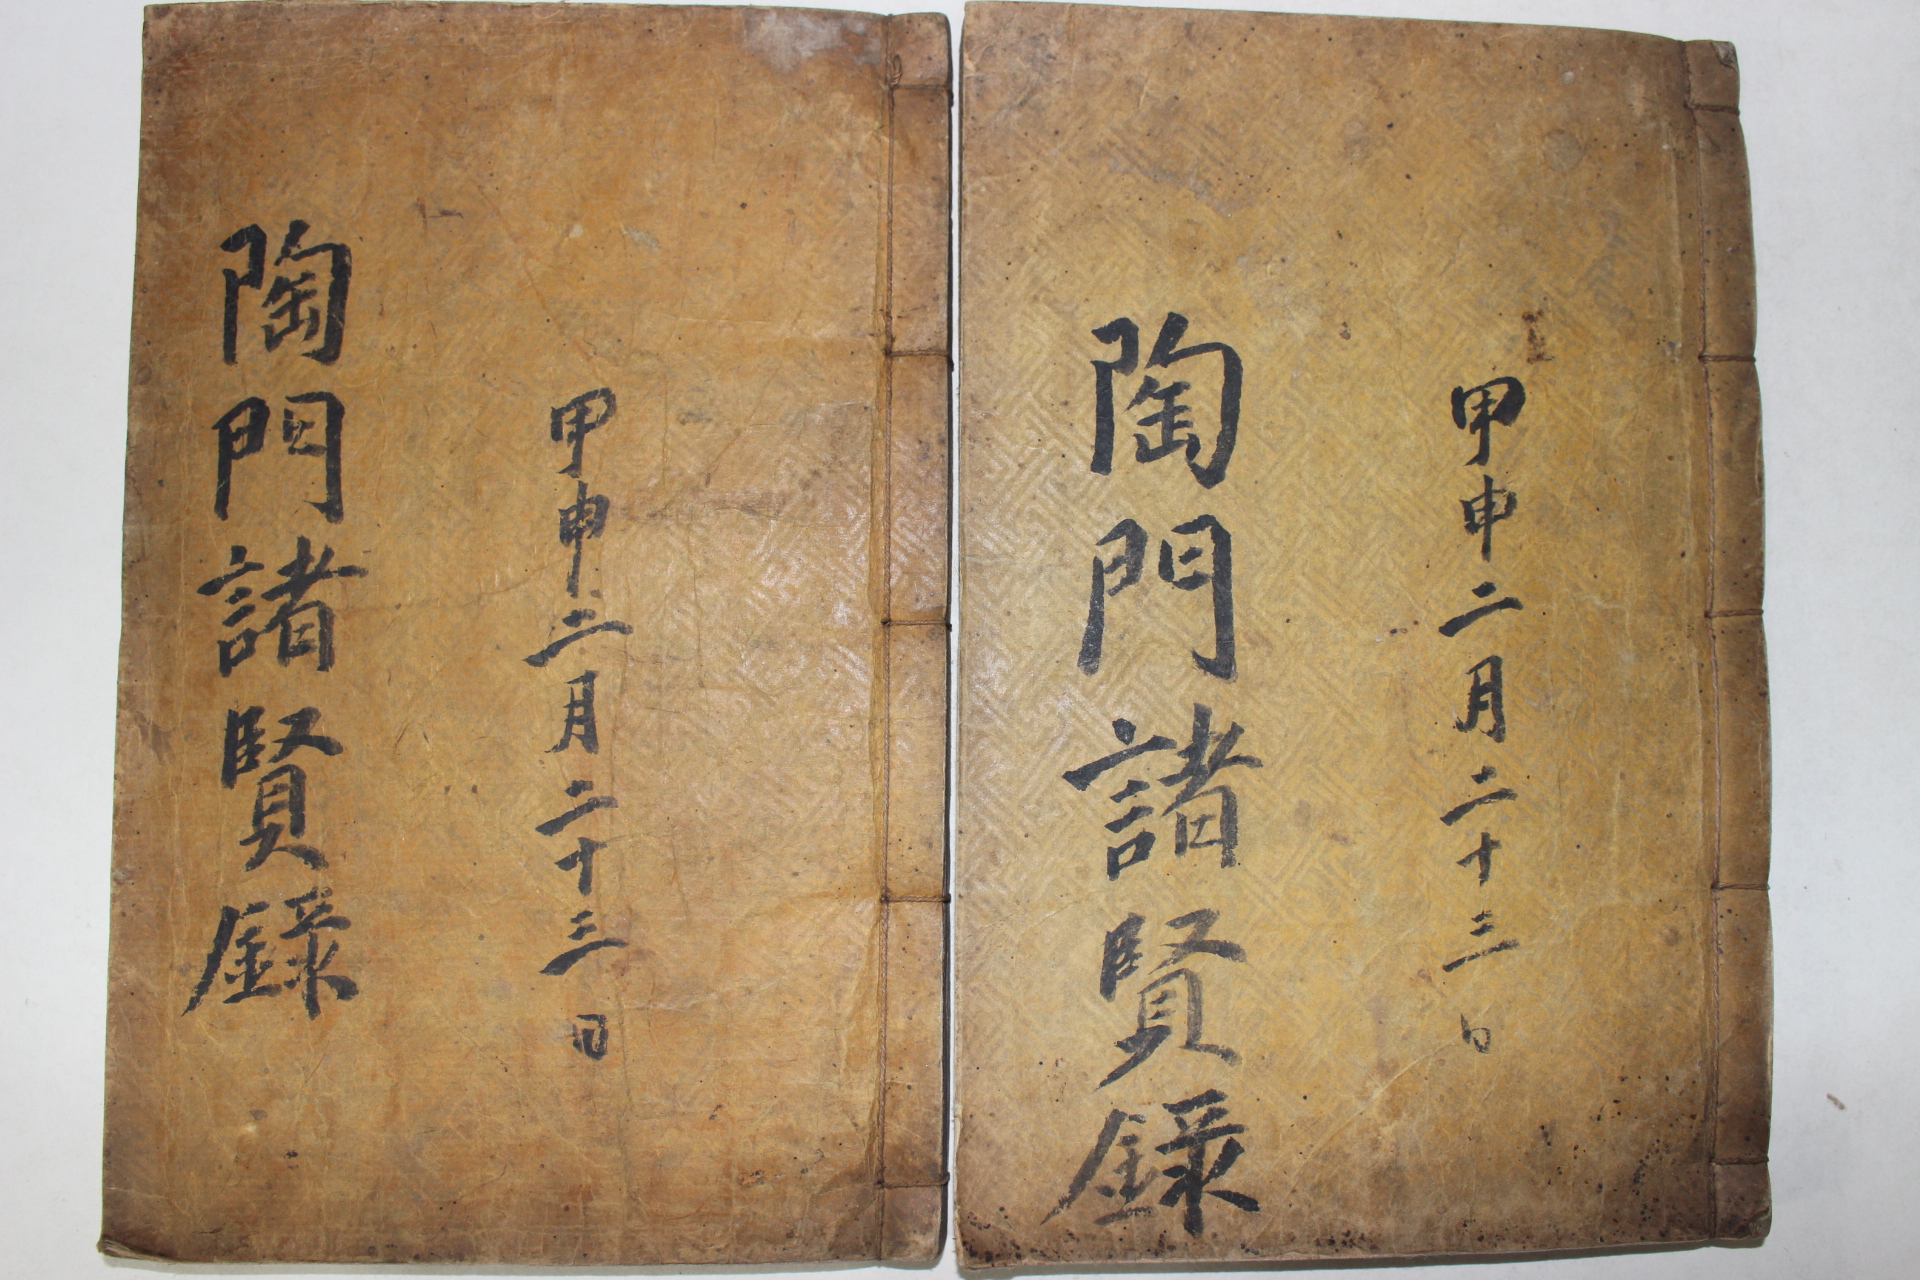 甲申二月二十三日
陶門諸賢錄
甲申二月二十三日
陶門諸賢錄